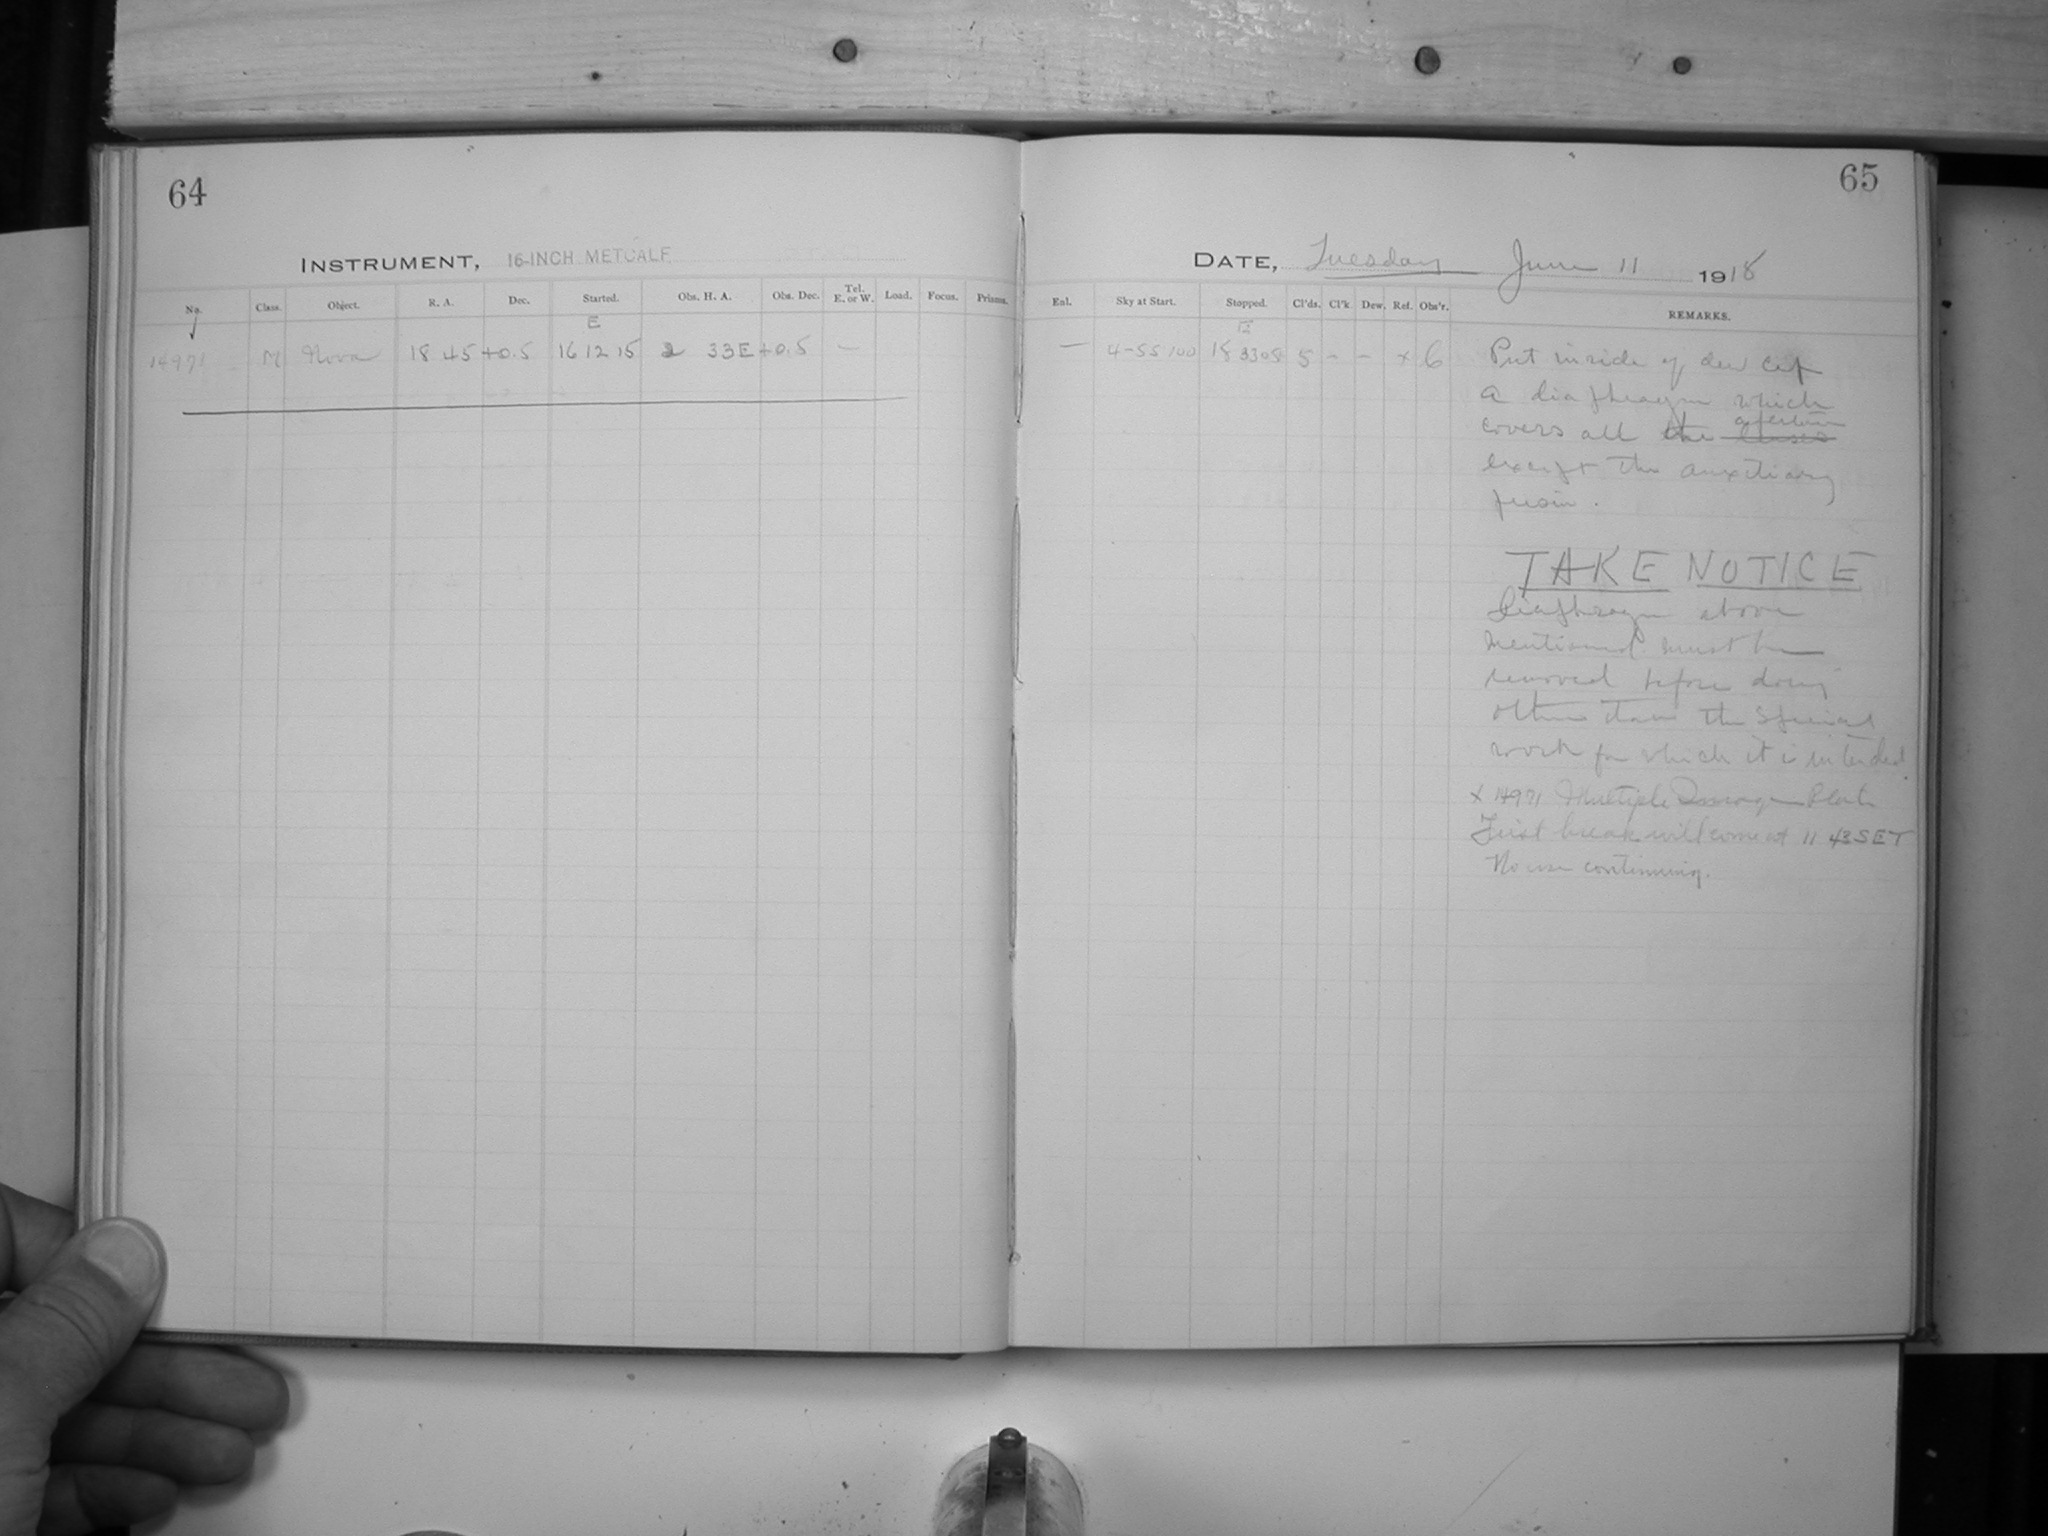 64
65
INSTRUMENT, 16-INCH METCALF
DATE, Tuesday June 11 1918
No. Class. Object. R. A. Dec. Started. Obs. H. A. Obs. Dec. Tel. E. or W. Load. Focus. Prisms.
Enl. Sky at Start. Stopped. Cl'ds. Cl'k. Dew. Ref. Obs'r. REMARKS.
E
14971 M Nova 18 45 +0.5 16 12 15 2 33E +0.5 —
— 4-55 100 18 33 05 5 - - x 6
Put inside of dew cap
a diaphragm which
covers all the aperture
except the auxiliary
prism.
TAKE NOTICE
Diaphragm above
mentioned must be
removed before doing
other than the special
work for which it is intended.
x 14971 Multiple Plate
First break will come at 11 43 SET
No use continuing.